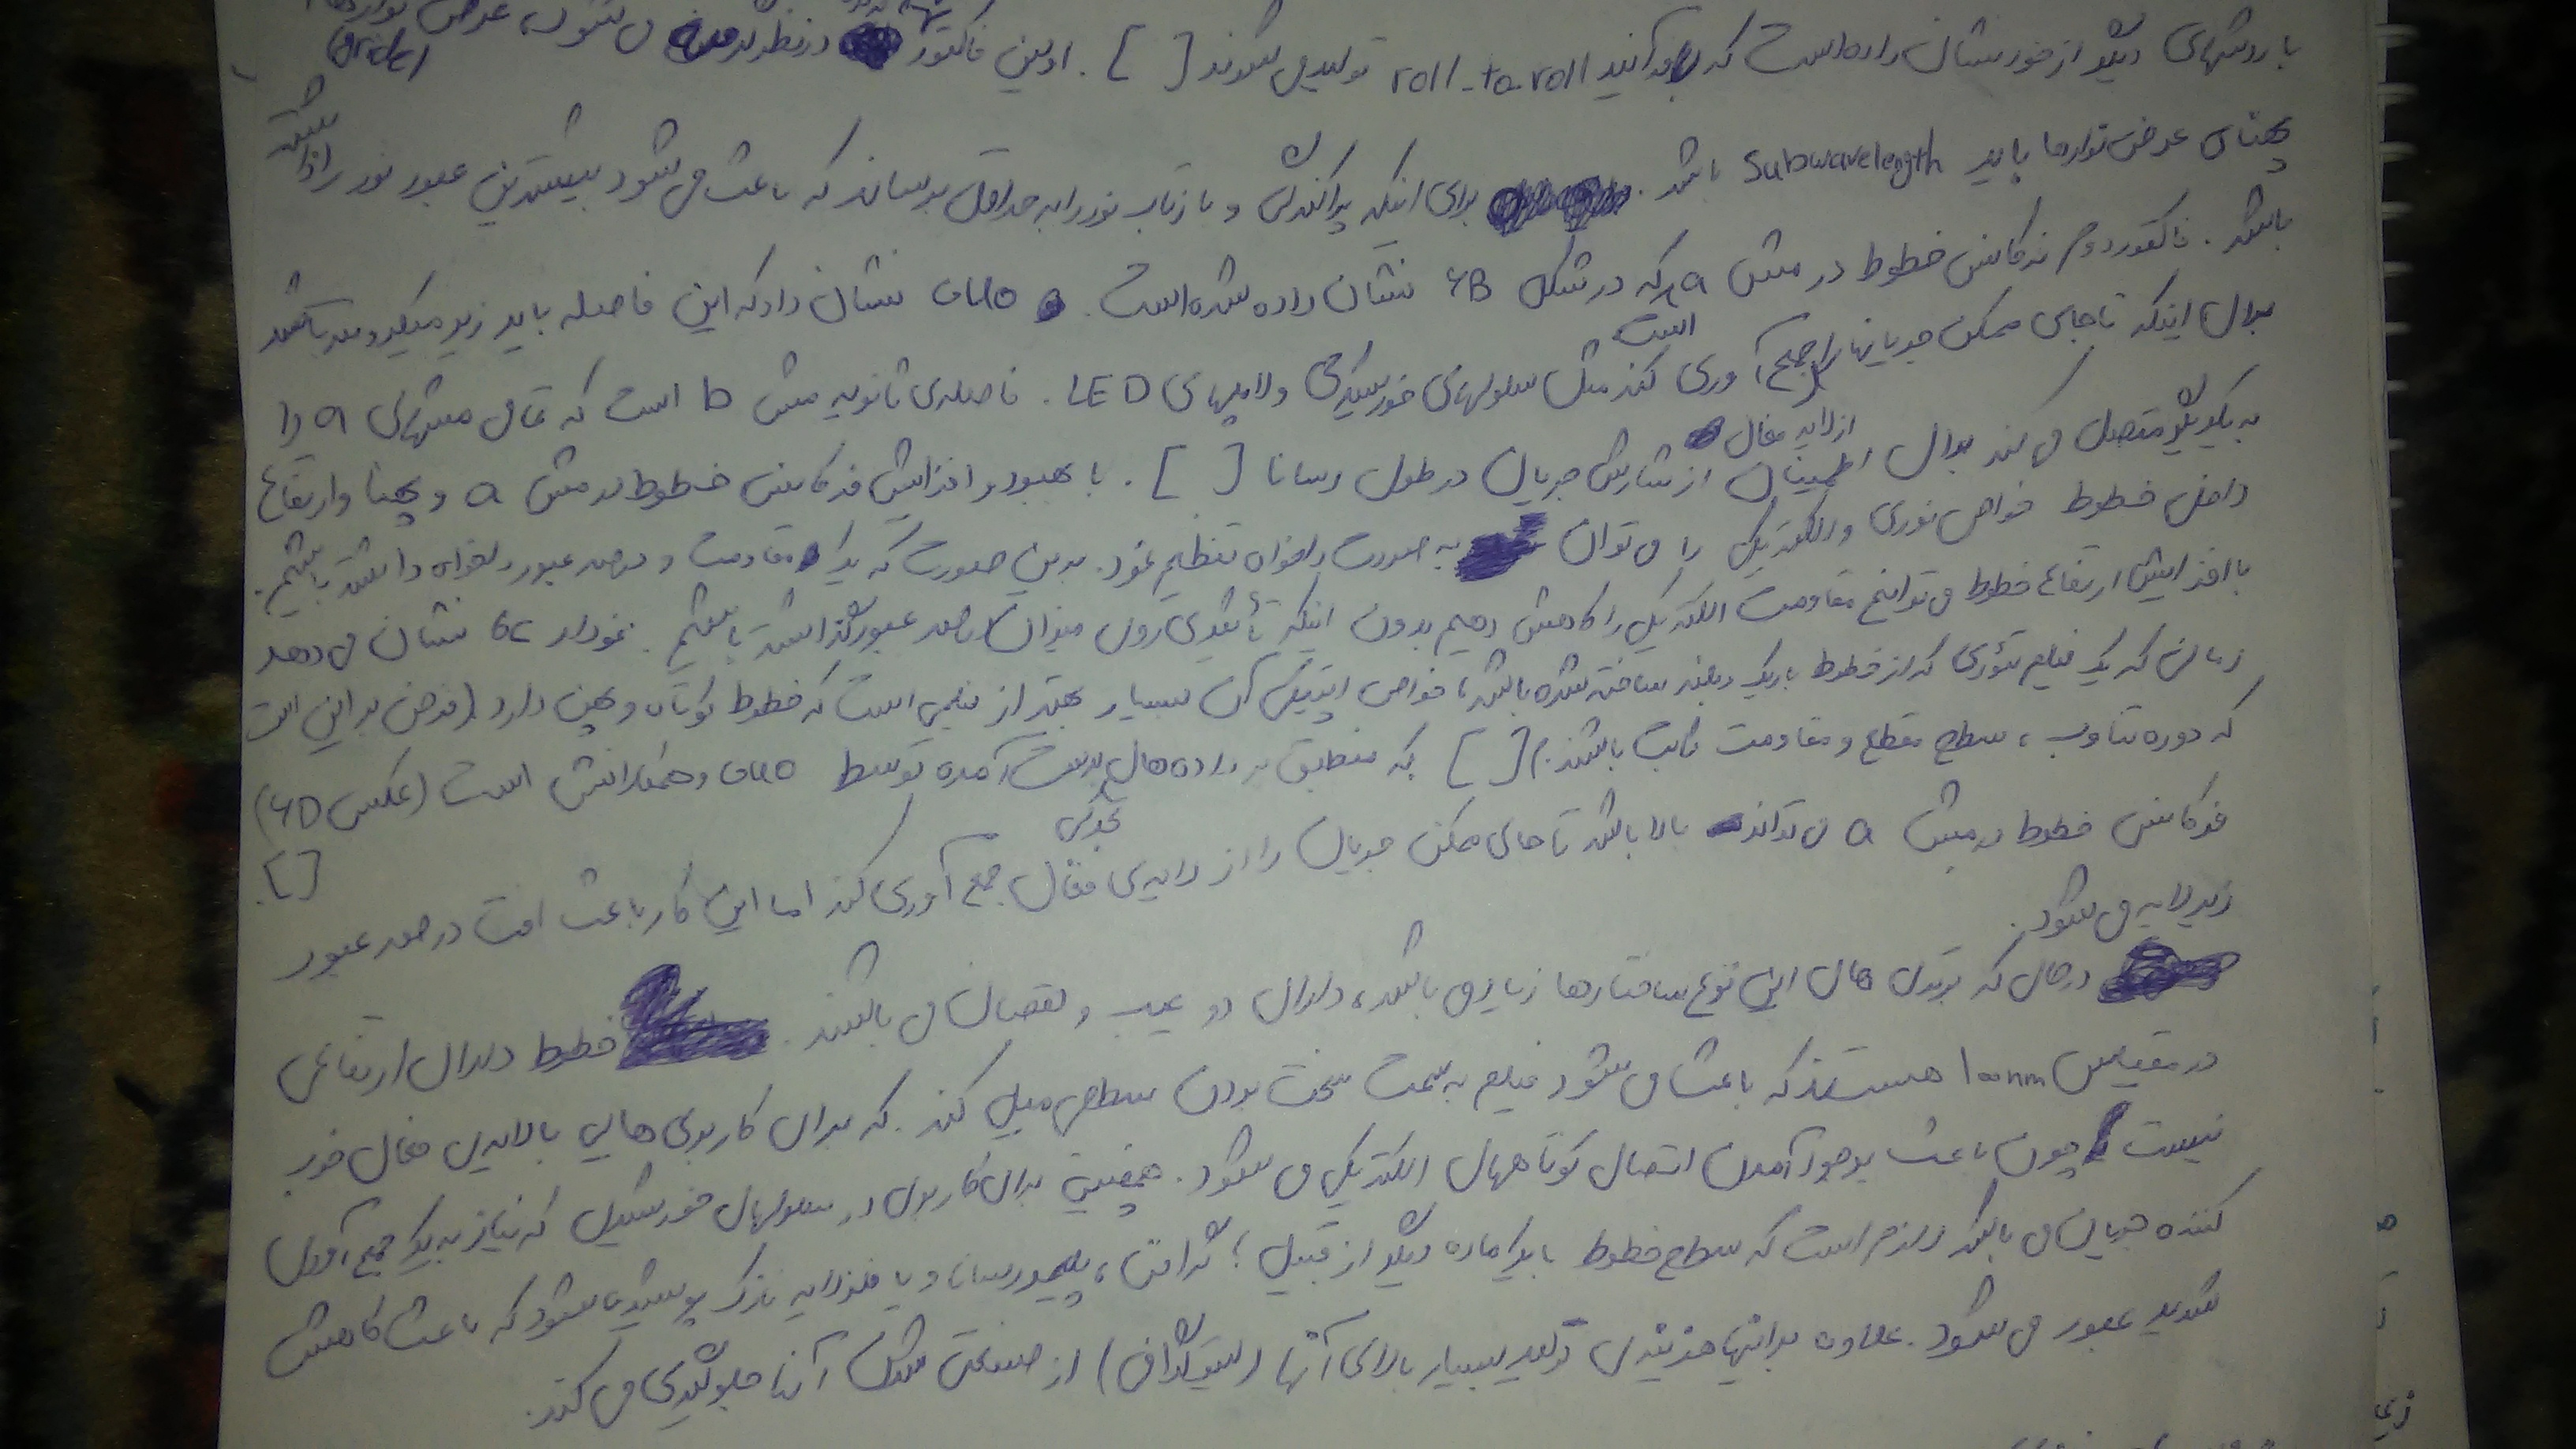 با روشهای دیگر از خود نشان داده است که با فرآیند roll-to-roll تولید می شوند [ ]. اولین فاکتور در نظر می شود، عرض نوارها (grids)
پهنای عرض نوارها باید Subwavelength باشد. برای اینکه پراکندگی و بازتاب نور را به حداقل برساند که باعث می شود بیشترین عبور نور را داشته
باشد. فاکتور دوم فرکانس خطوط در مش a است که در شکل ۶B نشان داده شده است. Guo نشان داد که این فاصله باید زیر میکرومتر باشد
برای اینکه تا جای ممکن جریانها را جمع آوری کند مثل سلولهای خورشیدی و لامپهای LED. فاصله ی ثانویه مش b است که تمامی مشهای a را
به یکدیگر متصل می کند برای اطمینان از شارش جریان از لایه فعال در طول رسانا [ ]. با بهبود و افزایش فرکانس خطوط در مش a و پهنا و ارتفاع
داخل خطوط خواص نوری و الکتریکی را می توان به صورت دلخواه تنظیم نمود. بدین صورت که یک مقاومت و درصد عبور دلخواه داشته باشیم.
با افزایش ارتفاع خطوط می توانیم مقاومت الکتریکی را کاهش دهیم بدون اینکه تأثیری روی میزان درصد عبور گذاشته باشیم. نمودار 6c نشان می دهد
زمانی که یک فیلم تئوری که از خطوط باریک و بلند ساخته شده باشد، خواص اپتیکی آن بسیار بهتر از فیلمی است که خطوط کوتاه و پهن دارد (فرض بر این است
که دوره تناوب، سطح مقطع و مقاومت ثابت باشند) [ ] که منطبق بر داده های بدست آمده توسط Guo و همکارانش است (عکس ۶D) [ ].
فرکانس خطوط در مش a می تواند بالا باشد تا جای ممکن جریان را از لایه ی فعال جمع آوری کند اما این کار باعث افت درصد عبور
زیرلایه می شود.
در حالی که برتری های این نوع ساختارها زیاد می باشد، دارای دو عیب و نقصان می باشند. خطوط دارای ارتفاعی
در مقیاس 100nm هستند که باعث می شود فیلم به سمت سخت بودن سطحی میل کند. که برای کاربری هایی با لایه ی فعال خوب
نیست چون باعث بوجود آمدن اتصال کوتاههای الکتریکی می شود. همچنین برای کاربری در سلولهای خورشیدی که نیاز به یک جمع آوری
کننده جریان می باشد لازم است که سطح خطوط با یک ماده دیگر از قبیل؛ گرافن، پلیمر رسانا و یا فلز لایه نازک پوشیده شود که باعث کاهش
شدید عبور می شود. علاوه بر اینها هزینه ی تولید بسیار بالای آنها (لیتوگرافی) از صنعتی شدن آنها جلوگیری می کند.